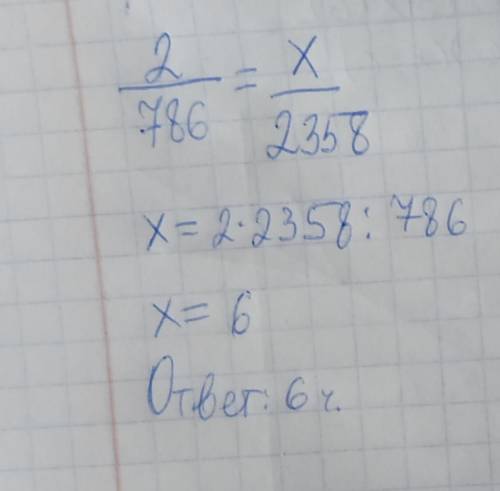 2/786 = x/2358
x = 2·2358 : 786
x = 6
Ответ: 6 ч.